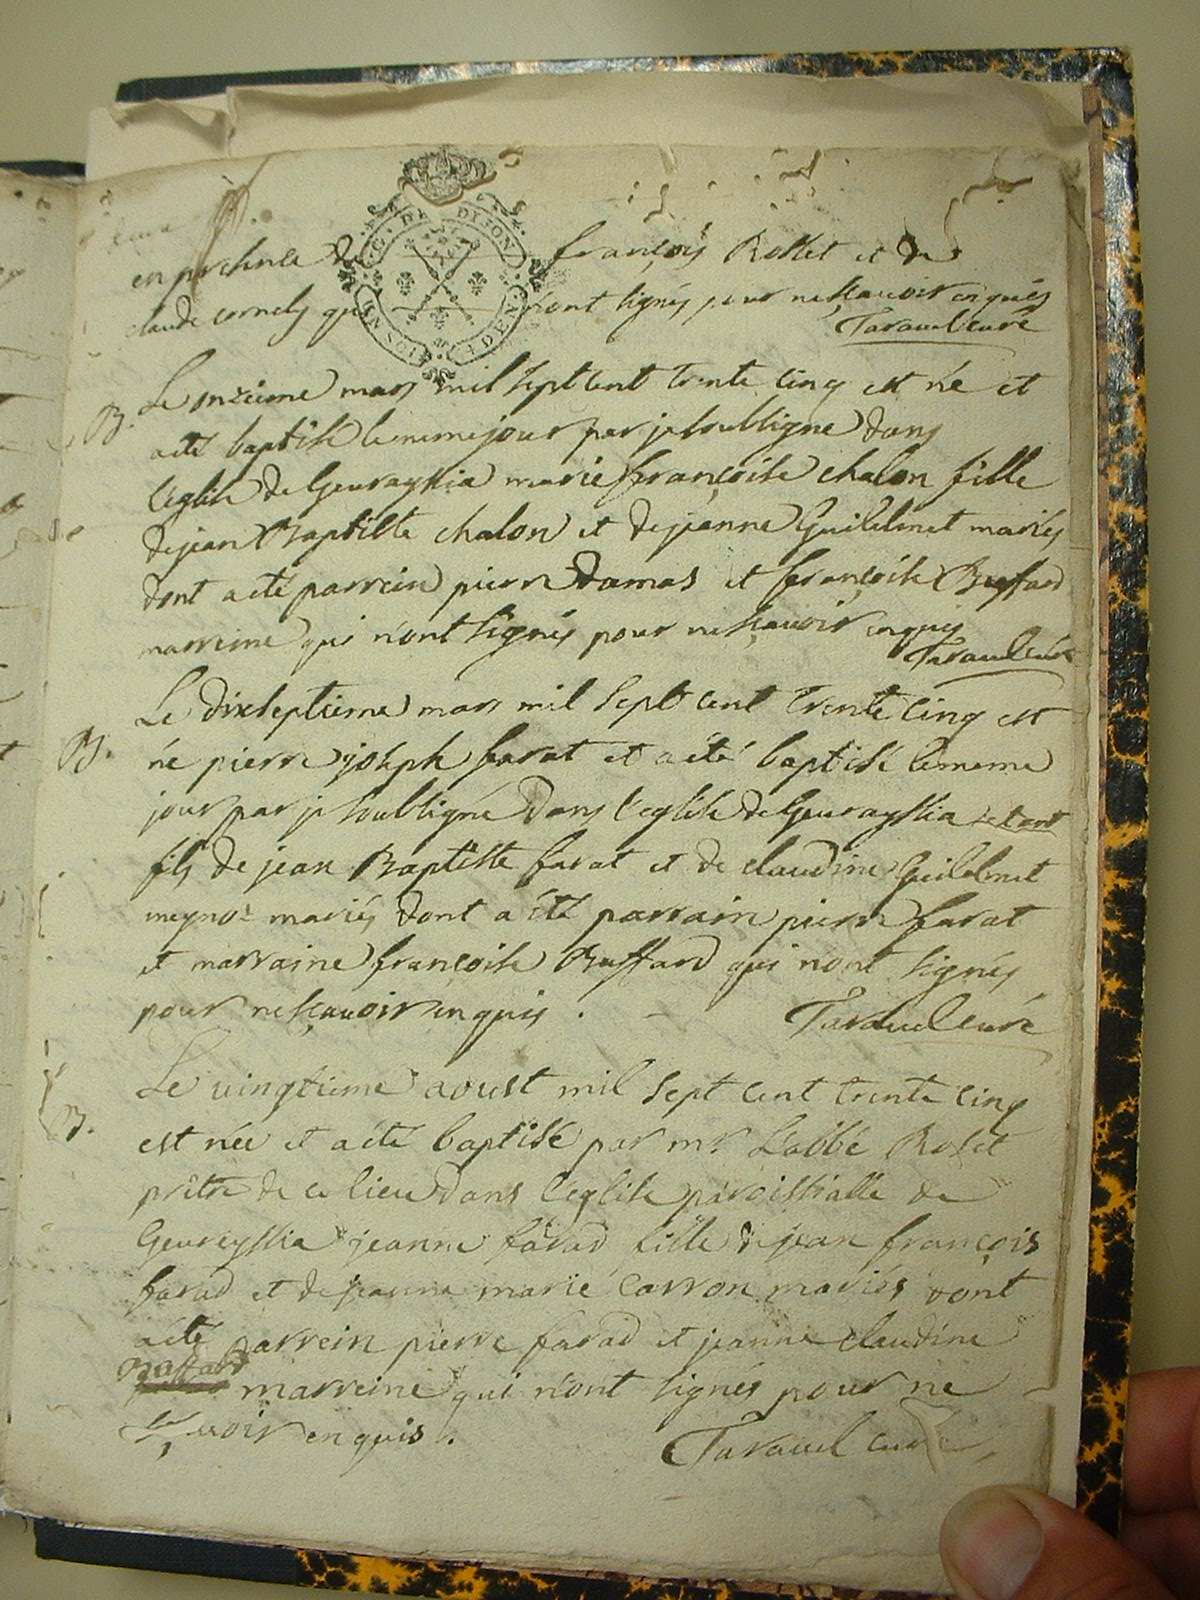 en presence de françois Rosset et de
claude cornely qui n'ont signés pour ne sçavoir enquis
Taravel curé
B. Le onzieme mars mil sept cent trente cinq est née et
a été baptisé le meme jour par je soubsigne dans
l'eglise de Geurayssia marie françoise chalon fille
de jean Baptiste chalon et de jeanne Guillelmet mariés
dont a été parrein pierre Damas et françoise Buffard
marreine qui n'ont signés pour ne sçavoir enquis
Taravel curé
Le dixseptieme mars mil sept cent trente cinq est
B. né pierre joseph farat et a été baptisé le meme
jour par je soubsigné dans l'eglise de Geurayssia
fils de jean Baptiste farat et de claudine Guillelmet
mariés dont a été parrain pierre farat
et marraine françoise Buffard qui n'ont signés
pour ne sçavoir enquis.
Taravel curé
Le vingtieme aoust mil sept cent trente cinq
B. est née et a été baptisé par mr. L'abbé Roset
prêtre de ce lieu dans l'eglise paroissialle de
Geureyssia jeanne farad fille de jean françois
farad et de jeanne marie Carron mariés dont
a été parrein pierre farad et jeanne claudine
Buffard marreine qui n'ont signés pour ne
sçavoir enquis.
Taravel curé
G. DE DIJON